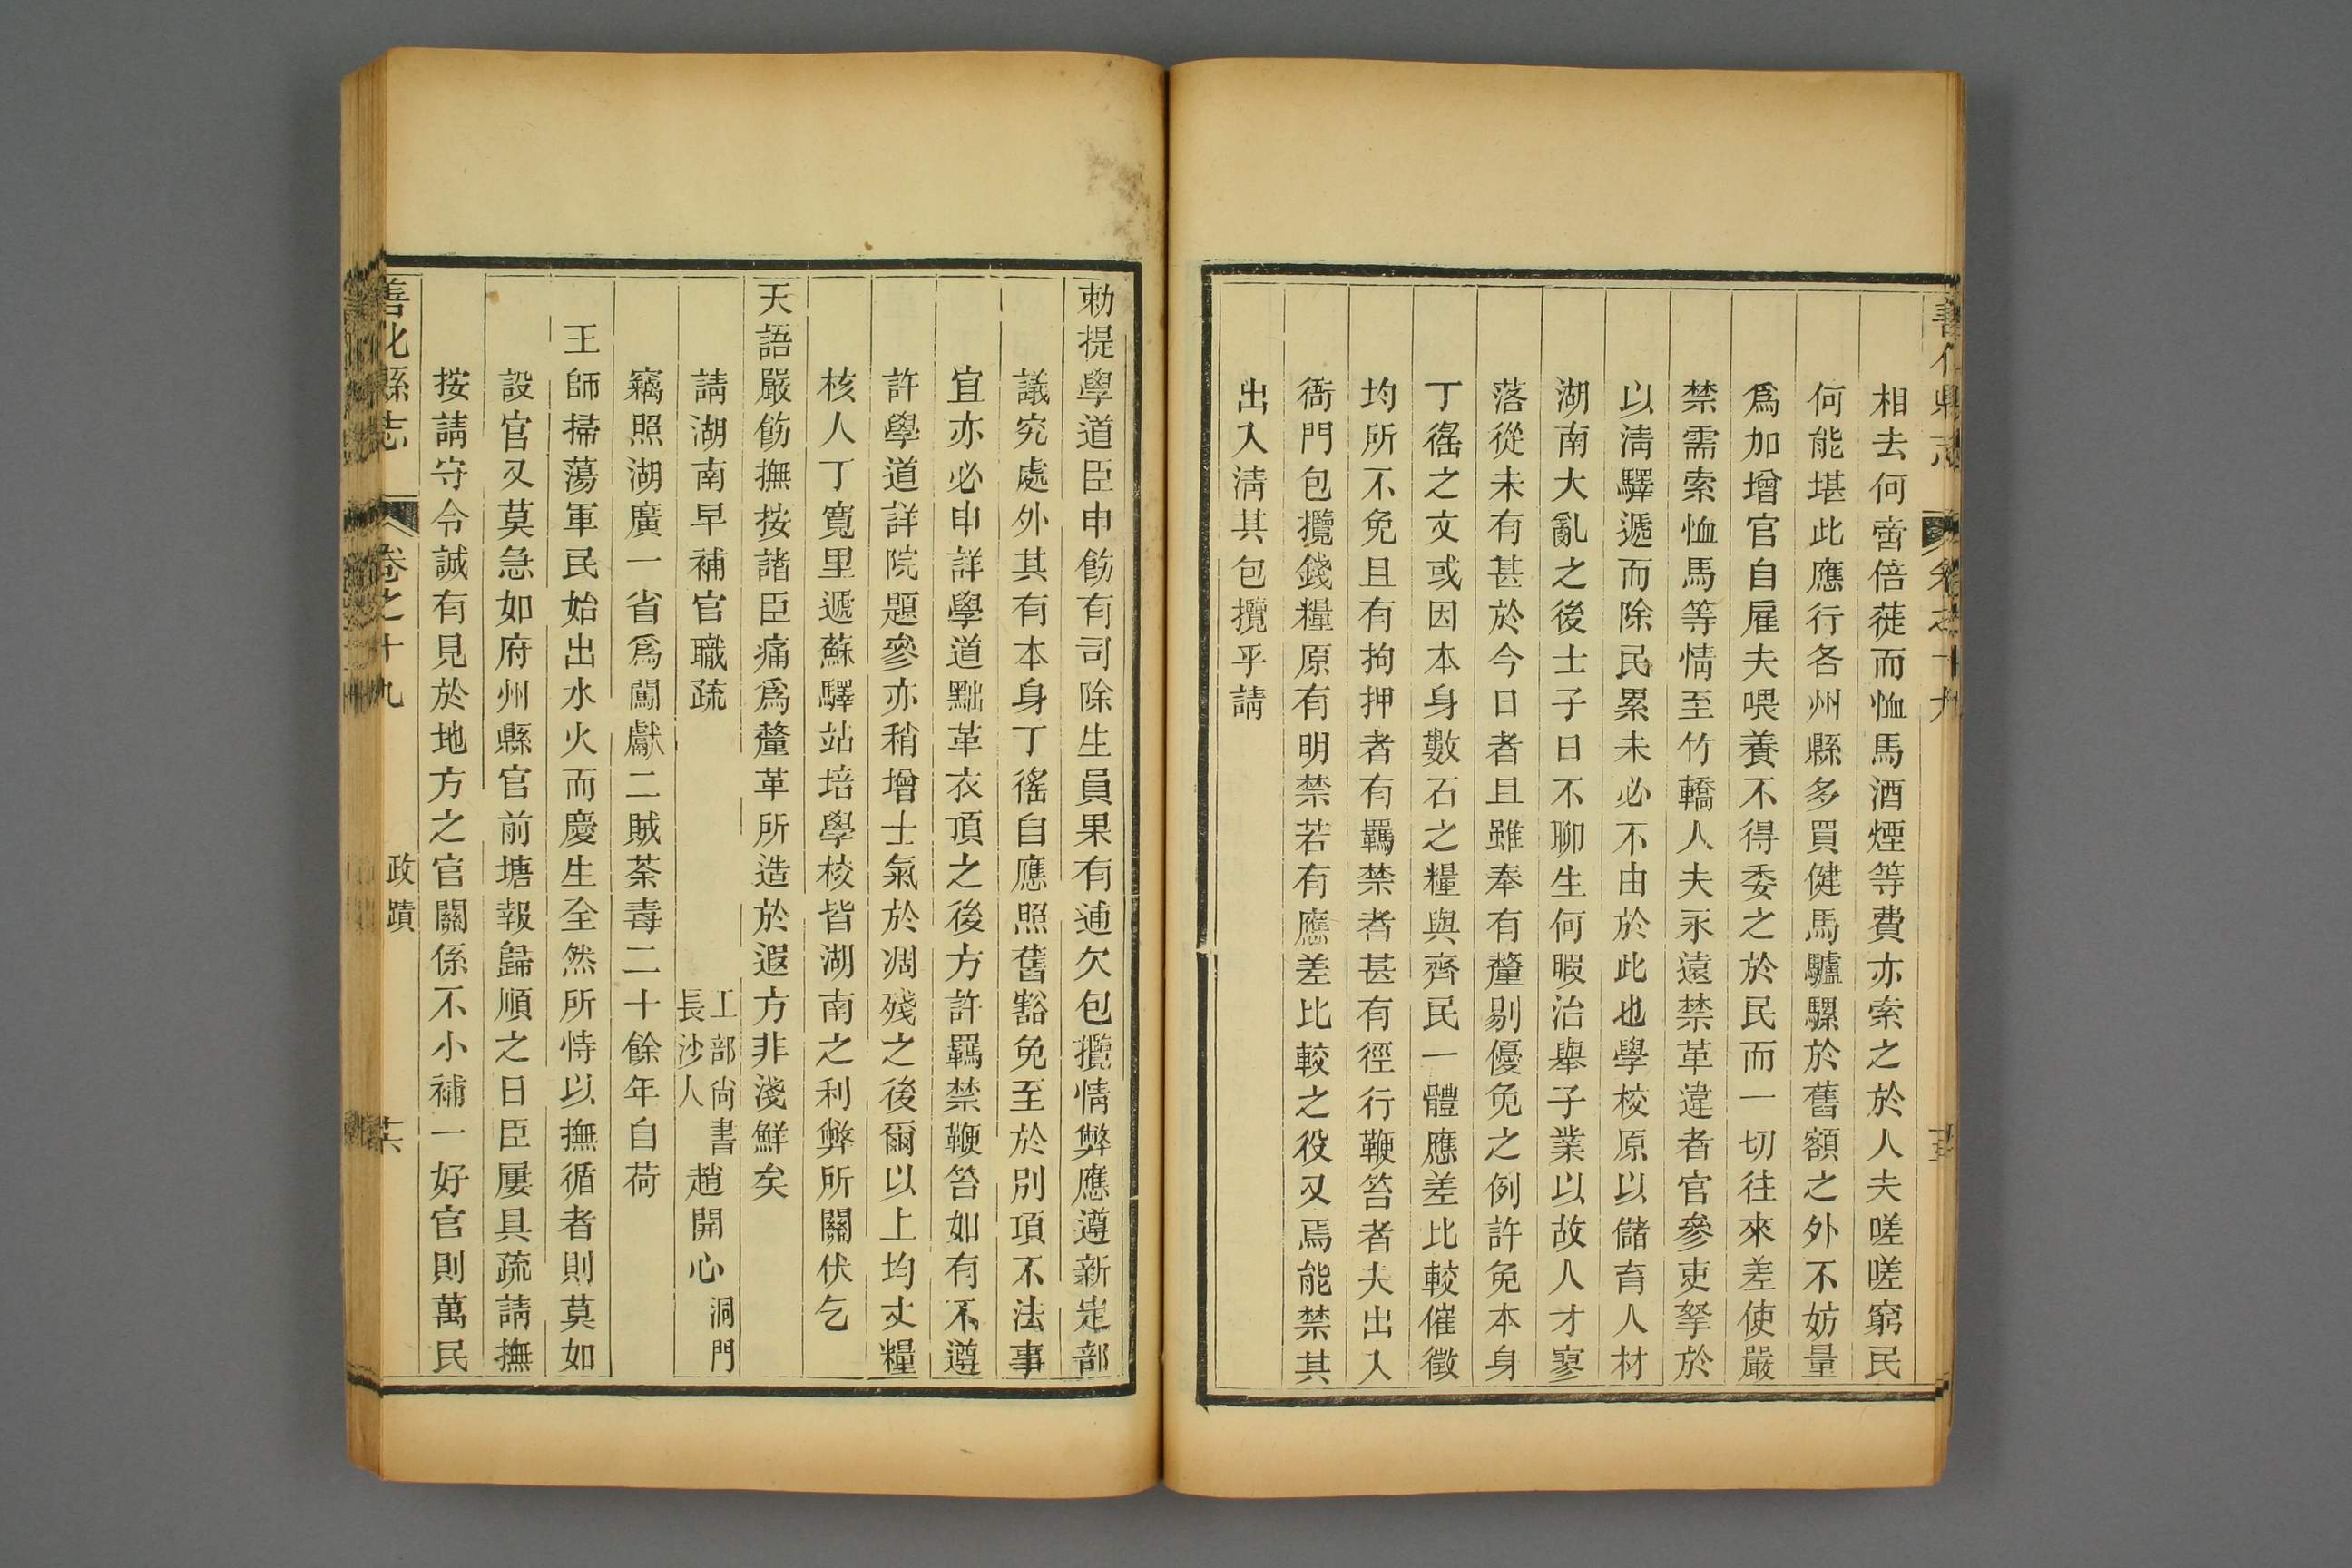 善化縣志 卷之十九
相去何啻倍蓰而恤馬酒煙等費亦索之於人夫嗟嗟窮民
何能堪此應行各州縣多買健馬驢騾於舊額之外不妨量
爲加增官自雇夫喂養不得委之於民而一切往來差使嚴
禁需索恤馬等情至竹轎人夫永遠禁革違者官參吏拏於
以淸驛遞而除民累未必不由於此也學校原以儲育人材
湖南大亂之後士子日不聊生何暇治舉子業以故人才寥
落從未有甚於今日者且雖奉有釐剔優免之例許免本身
丁徭之文或因本身數石之糧與齊民一體應差比較催徵
均所不免且有拘押者有羈禁者甚有徑行鞭笞者夫出入
衙門包攬錢糧原有明禁若有應差比較之役又焉能禁其
出入淸其包攬乎請
勅提學道臣申飭有司除生員果有逋欠包攬情弊應遵新定部
議究處外其有本身丁徭自應照舊豁免至於別項不法事
宜亦必申詳學道黜革衣頂之後方許羈禁鞭笞如有不遵
許學道詳院題參亦稍增士氣於凋殘之後爾以上均丈糧
核人丁寬里遞蘇驛站培學校皆湖南之利弊所關伏乞
天語嚴飭撫按諸臣痛爲釐革所造於遐方非淺鮮矣
請湖南早補官職疏 工部尙書長沙人趙開心洞門
竊照湖廣一省爲闖獻二賊荼毒二十餘年自荷
王師掃蕩軍民始出水火而慶生全然所恃以撫循者則莫如
設官又莫急如府州縣官前塘報歸順之日臣屢具疏請撫
按請守令誠有見於地方之官關係不小補一好官則萬民
善化縣志 卷之十九 政蹟